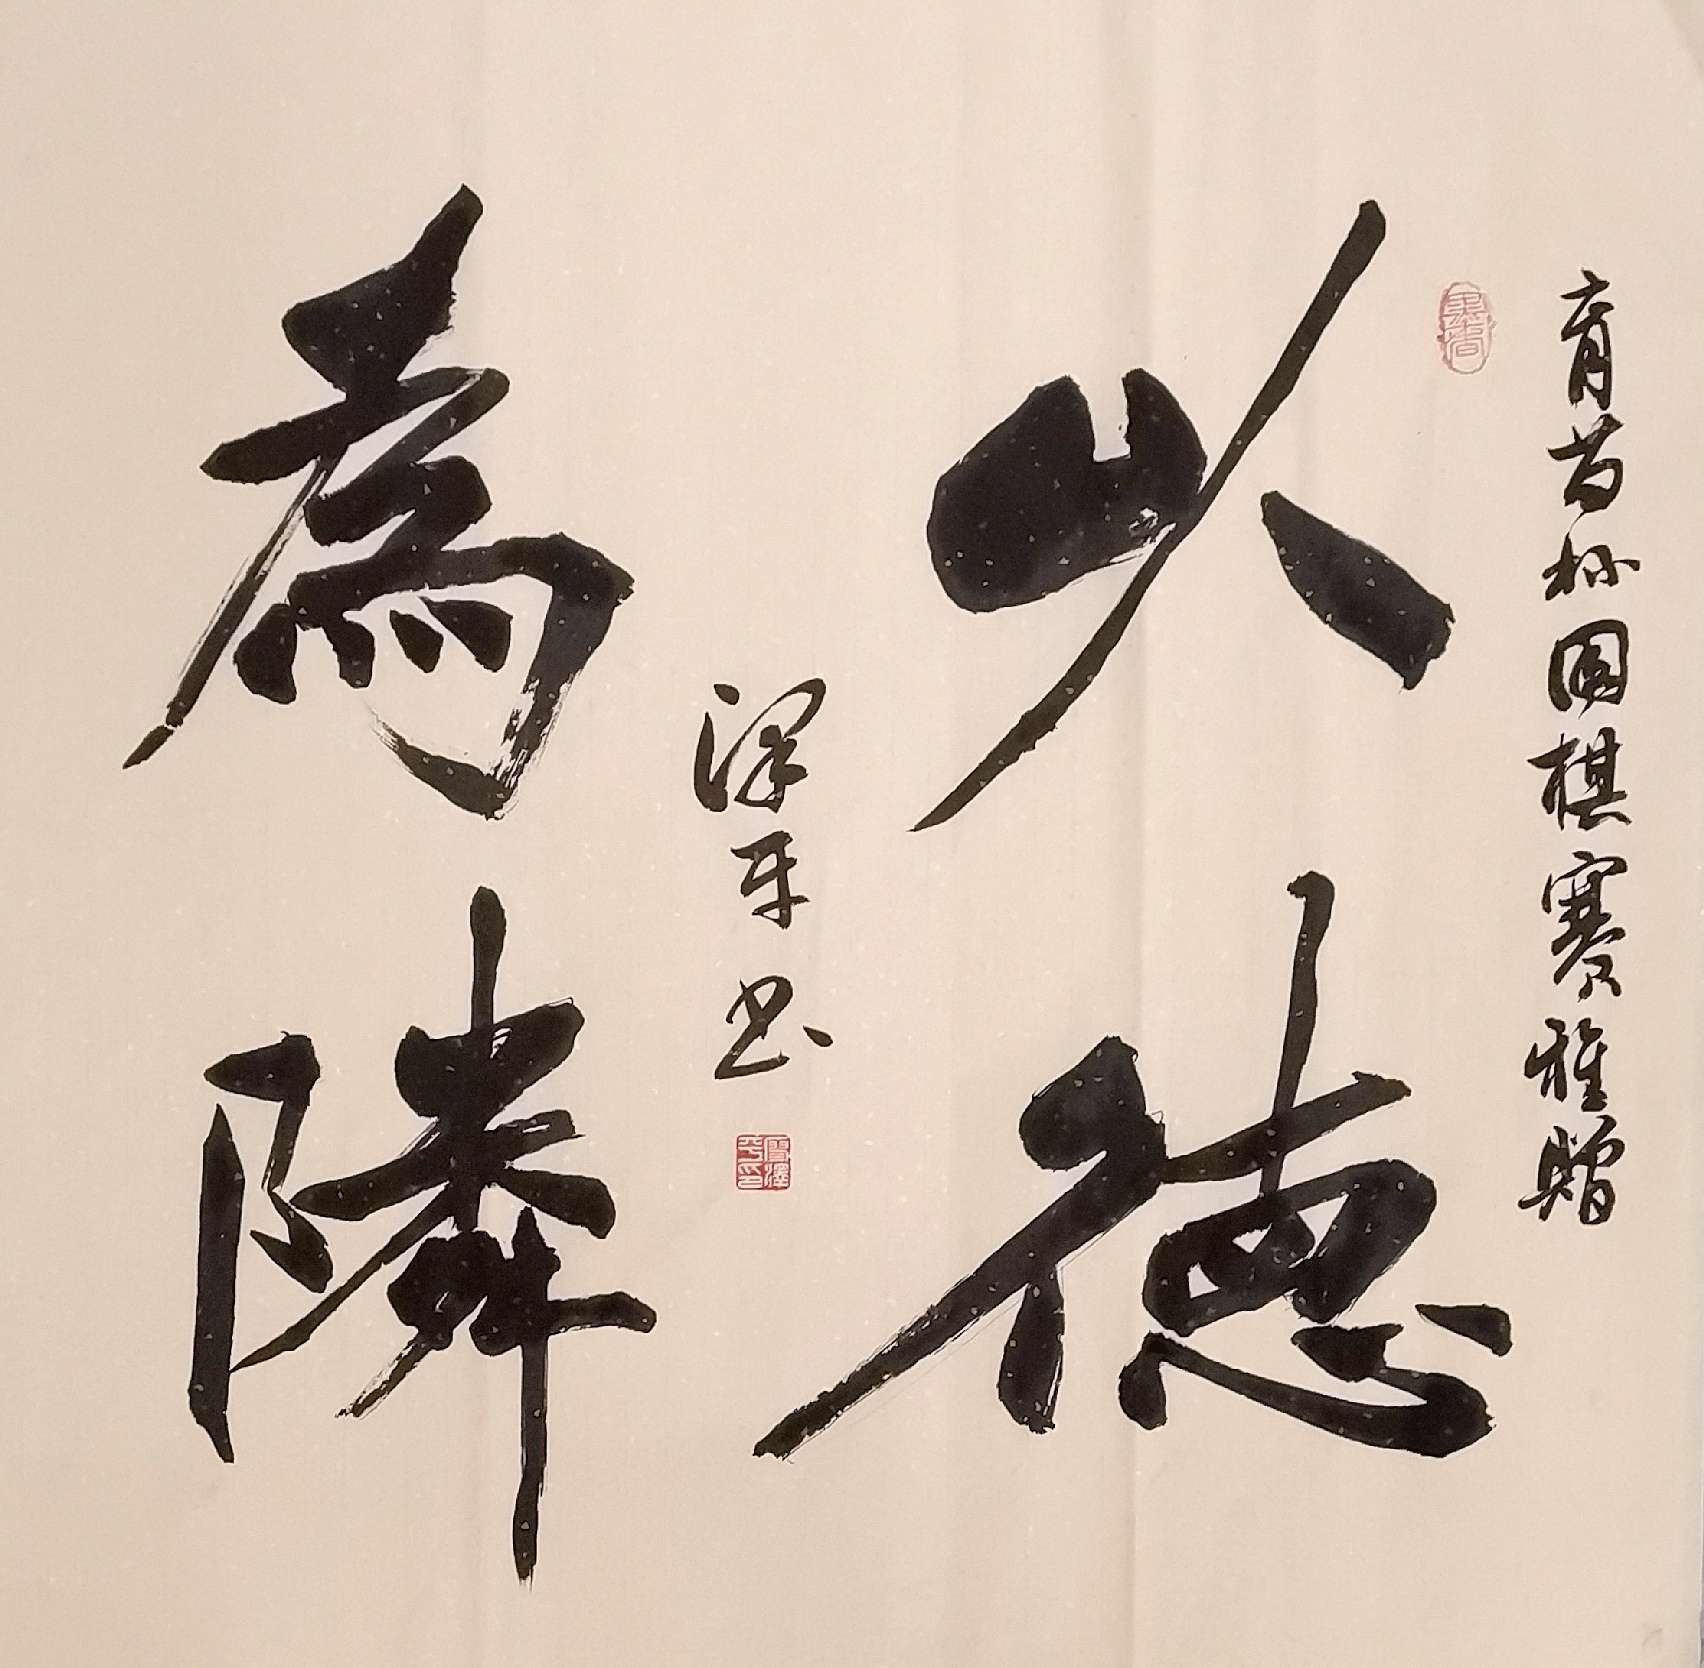 育苗杯围棋赛雅赠
以德
為隣
泽平书